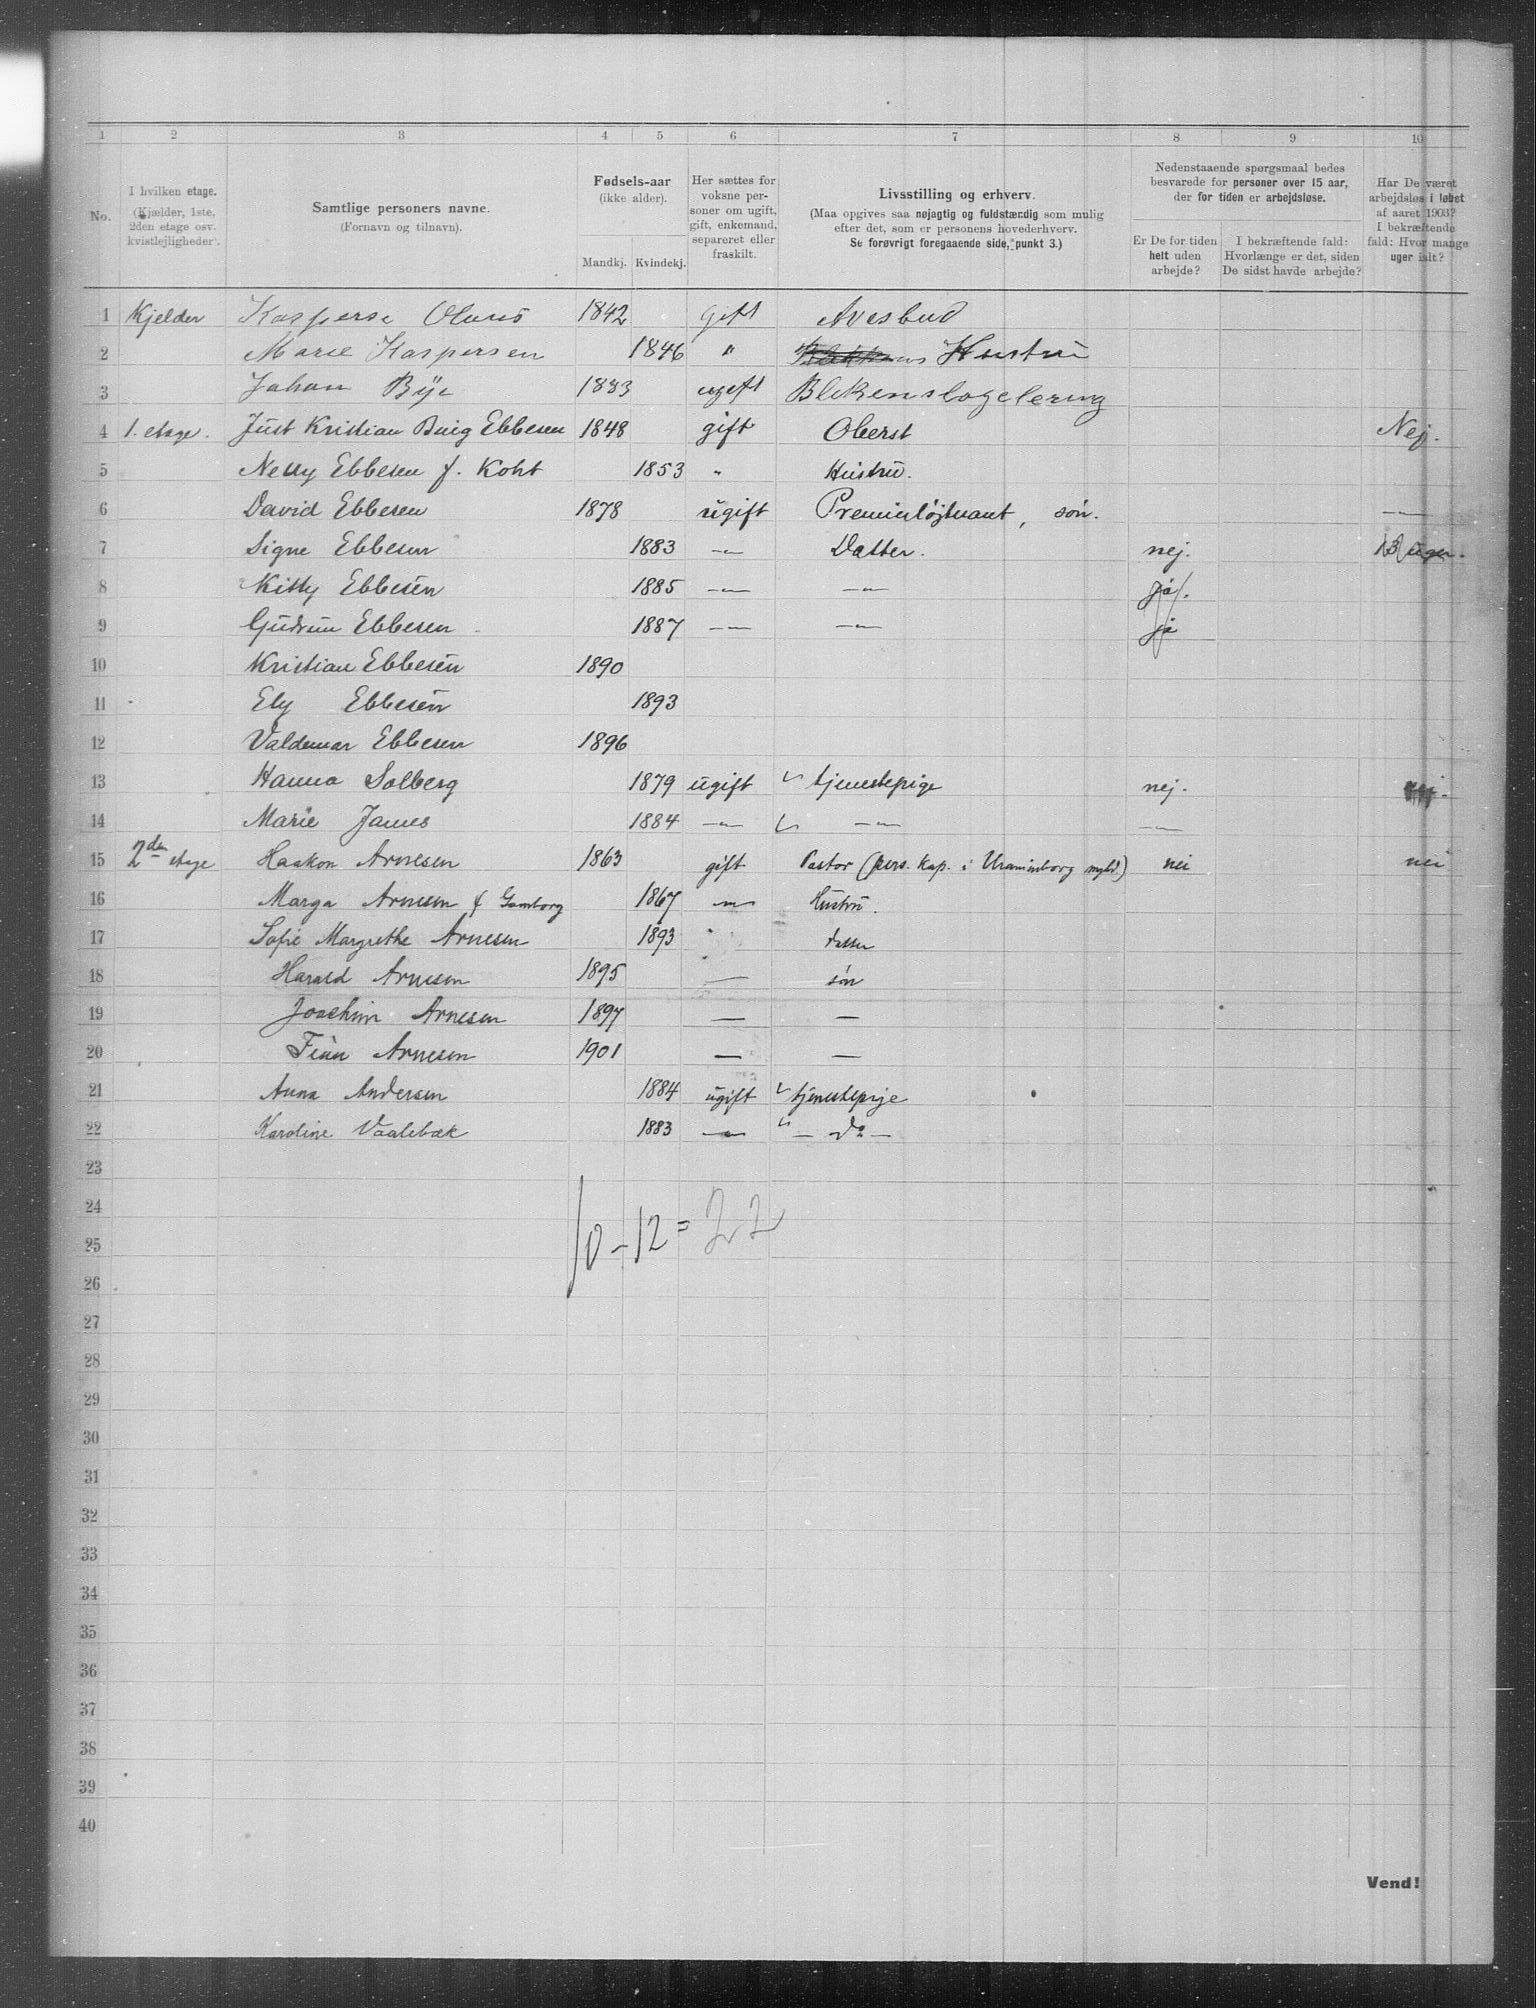 1 2 3 4 5 6 7 8 9 10
No.
I hvilken etage.
(Kjælder, 1ste,
2den etage osv.
kvistlejligheder).
Samtlige personers navne.
(Fornavn og tilnavn).
Fødsels-aar
(ikke alder).
Mandkj. Kvindekj.
Her sættes for
voksne per-
soner om ugift,
gift, enkemand,
separeret eller
fraskilt.
Livsstilling og erhverv.
(Maa opgives saa nøjagtig og fuldstærdig som mulig
efter det, som er personens hovederhverv.
Se forøvrigt foregaaende side, punkt 3.)
Nedenstaaende spørgsmaal bedes
besvarede for personer over 15 aar,
der for tiden er arbejdsløse.
Er De for tiden
helt uden
arbejde?
I bekræftende fald:
Hvorlænge er det, siden
De sidst havde arbejde?
Har De været
arbejdsløs i løbet
af aaret 1903?
I bekræftende
fald: Hvor mange
uger ialt?
1 Kjelder Kasperse Olaus 1842 gift Avisbud
2 Marie Kaspersen 1846 " Hustru
3 Johan Bye 1883 ugift Blikenslagelering
4 1. etage. Just Kristian Buig Ebbesen 1848 gift Oberst Nej.
5 Nelly Ebbesen f. Koht 1853 " Hustru.
6 David Ebbesen 1878 ugift Premierløjtnant, søn. —
7 Signe Ebbesen 1883 —"— Datter. nej. 13 uger.
8 Kitty Ebbesen 1885 —"— —"— Ja.
9 Gudrun Ebbesen 1887 —"— —"— ja
10 Kristian Ebbesen 1890
11 Ely Ebbesen 1893
12 Valdemar Ebbesen 1896
13 Hanna Solberg 1879 ugift tjenestepige nej.
14 Marie James 1884 —"— —"— —"—
15 2den etage Haakon Arnesen 1863 gift Pastor (pers. kap. i Uranienborg mghd.) nei nei
16 Marga Arnesen f Gamborg 1867 —"— Hustru.
17 Sofie Margrethe Arnesen 1893 " datter
18 Harald Arnesen 1895 — søn
19 Joachim Arnesen 1897 — —
20 Finn Arnesen 1901 — —
21 Anna Andersen 1884 ugift tjenestepige
22 Karoline Vaalebæk 1883 —"— — do —
23
24
10 - 12 = 22
25
26
27
28
29
30
31
32
33
34
35
36
37
38
39
40
Vend!